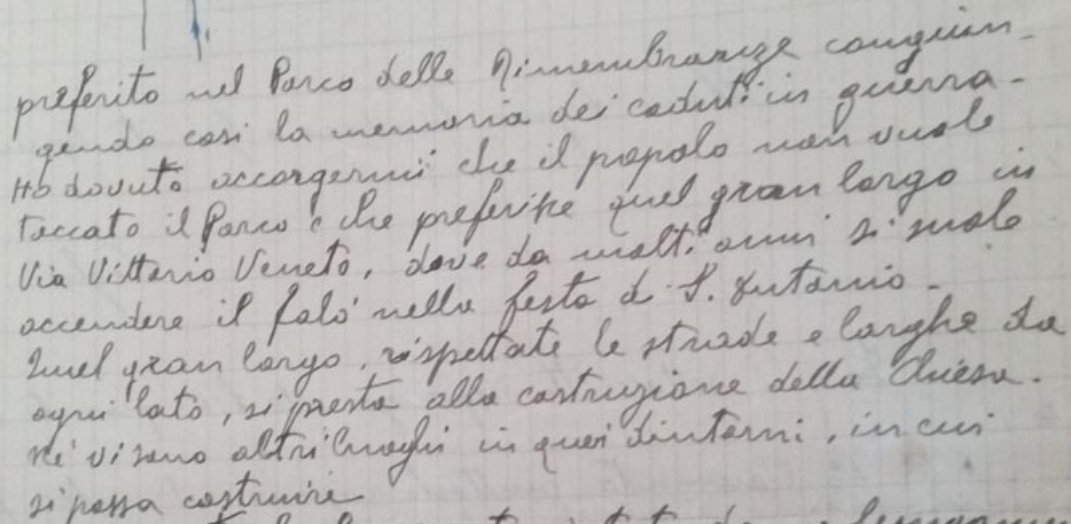 preferito nel Parco delle Rimembranze congiun-
gendo così la memoria dei caduti in guerra.
Ho dovuto accorgermi che il popolo non vuole
toccato il Parco e che preferisce quel gran largo in
Via Vittorio Veneto, dove da molti anni si suole
accendere il falò nella festa di S. Antonio.
Quel gran largo, rispettate le strade e larghe da
ogni lato, si presta alla costruzione della Chiesa.
Né vi sono altri luoghi in quei dintorni, in cui
si possa costruire